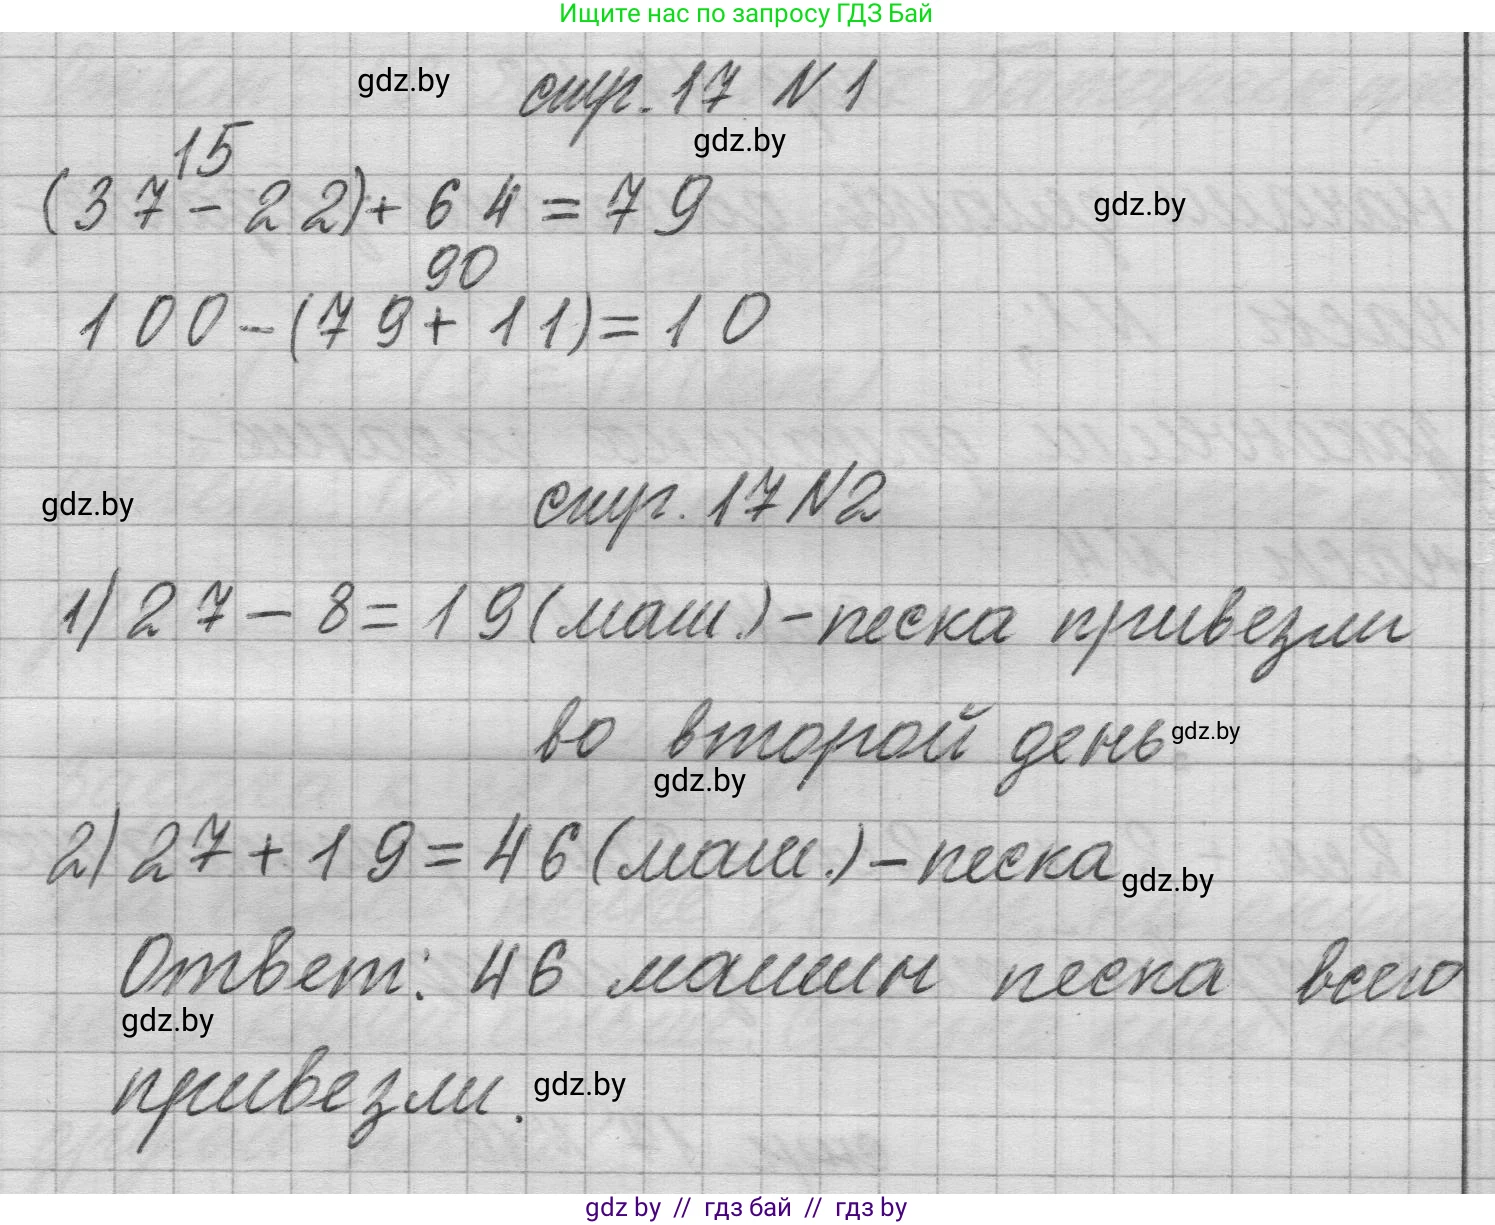 Ищите нас по запросу ГДЗ Бай
gdz.by стр. 17 N 1
gdz.by
15
(37-22)+64=79 gdz.by
90
100-(79+11)=10
gdz.by стр. 17 N2
1) 27-8=19(маш.)-песка привезли
во второй день. gdz.by
gdz.by
2) 27+19=46(маш.)-песка gdz.by
Ответ: 46 машин песка всего
gdz.by
привезли. gdz.by
gdz by // гдз бай // gdz by